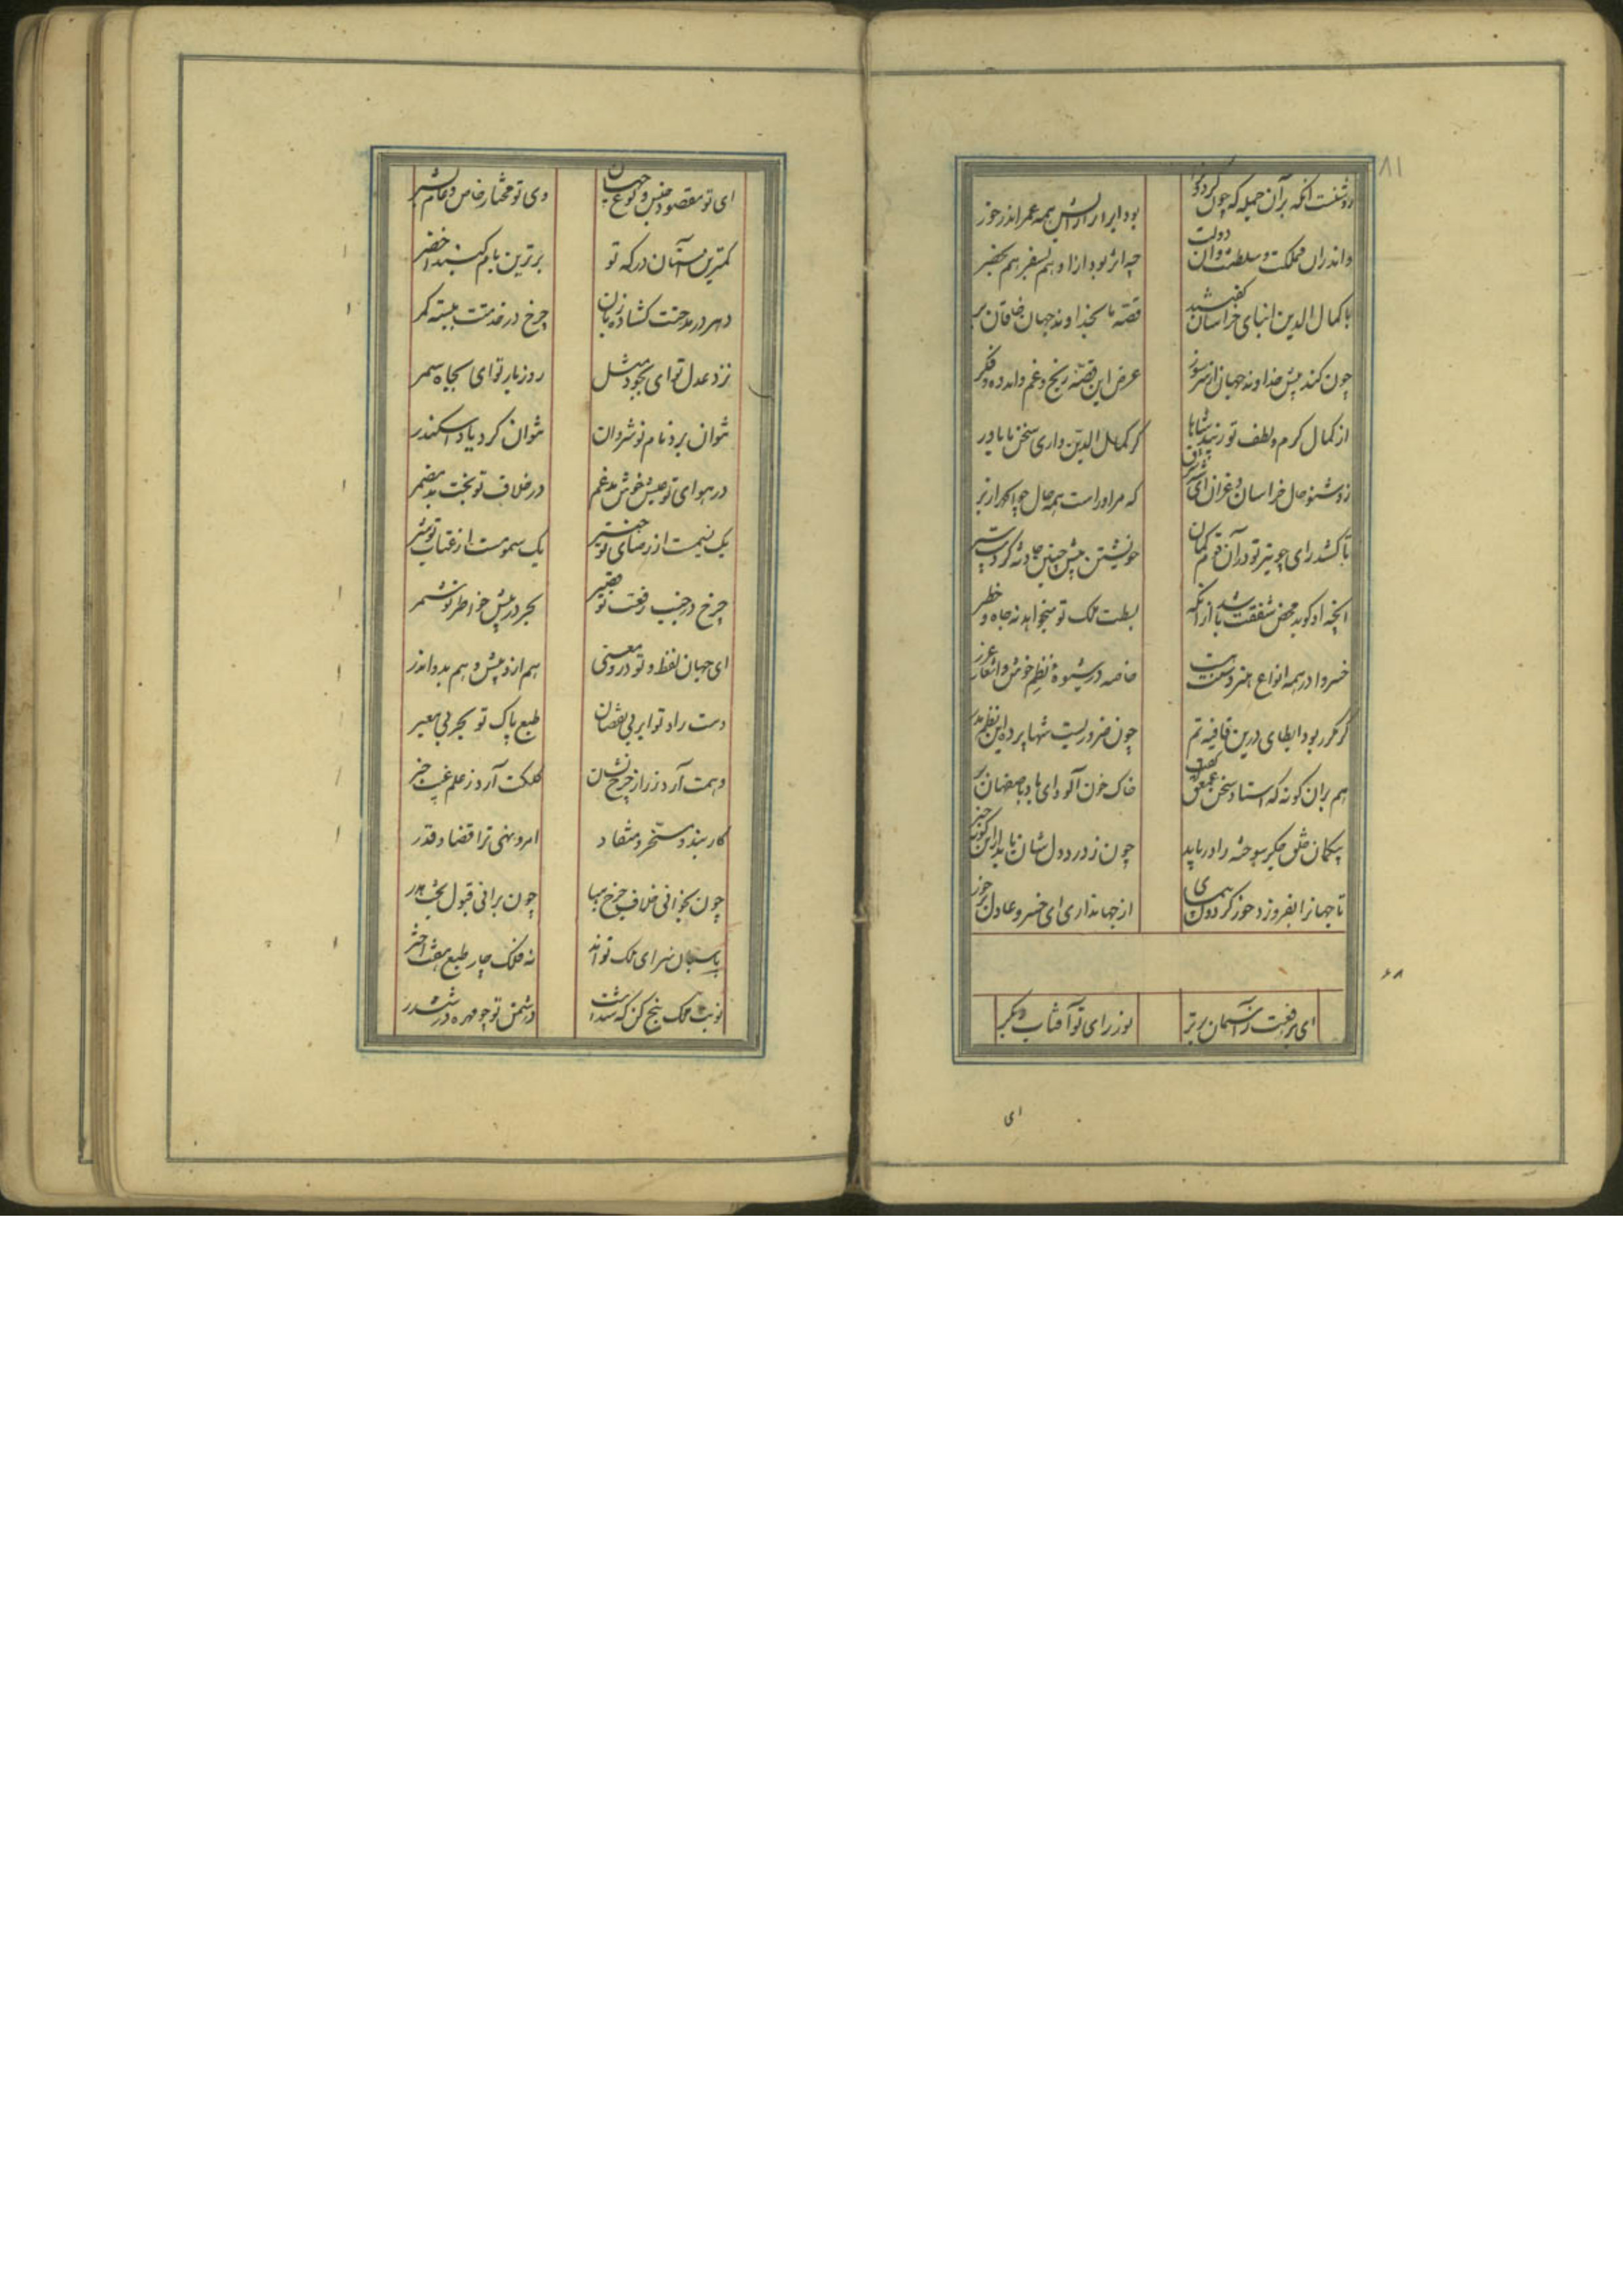 ۸۱
روشنست آنکه بر آن جمله که چون گردون
بود ایرانرا رایش همه عمر اندر خور
واندران مملکت و سلطنت و آن دولت
چه اثر بود ازو هم بسفر هم بحضر
با کمال الدین ابنای خراسان گفتند
قصه ما بخداوند جهان خاقان بر
چون کند پیش خداوند جهان از سر سوز
عرض این قصه رنج و غم و اندوه و فکر
از کمال کرم و لطف تو زیبد شاها
کز کمال الدین داری سخن ما باور
زو شنو حال خراسان و عراق ای شه شرق
که مر او راست همه حال چو الحمد از بر
تا کشد رای چو تیر تو در آن قوم کمان
خویشتن پیش چنین حادثه کرد سپر
آنچه او گوید محض شفقت باشد از آنکه
بسطت ملک تو میخواهد نه جاه و خطر
خسروا در همه انواع هنر دستت هست
خاصه در شیوه نظم خوش و اشعار غرر
گر مکرر بود ایطای درین قافیتم
چون ضروریست شها پرده این نظم مدر
هم بران گونه که استاد سخن عمعق گفت
خاک خون آلود ای باد باصفهان بر
بیگمان خلق جگر سوخته را دریابد
چون ز درد دل شان یابد ازین گونه خبر
تا جهانرا بفروزد خور گردون پیمای
از جهانداری ای خسرو عادل بر خور
۶۸
ای برفعت ز آسمان برتر
نور رای تو آفتاب دگر
ای
ای تو مقصود جنس و نوع جهان
وی تو مختار خاص و عام بشر
کمترین آستان درگه تو
برترین بام گنبد اخضر
دهر در مدحتت گشاده زبان
چرخ در خدمتت ببسته کمر
نزد عدل تو ای بجود مثل
روز بار تو ای بجاه سمر
نتوان برد نام نوشروان
نتوان کرد یاد اسکندر
در هوای تو عیش خوش مدغم
در خلاف تو بخت بد مضمر
یک نسیمست از رضای تو خیر
یک سمومست از عتاب تو شر
چرخ در جنب رفعت تو قصیر
بحر در پیش خاطر تو شمر
ای جهان لفظ و تو درو معنی
هم ازو پیش و هم بدو اندر
دست راد تو ابر بی نقصان
طبع پاک تو بحر بی معبر
وهمت آرد ز راز چرخ نشان
کلکت آرد ز علم غیب خبر
کار بند و مسخر و منقاد
امر و نهی ترا قضا و قدر
چون بخوانی خلاف چرخ هبا
چون برانی قبول بخت هدر
پاسبان سرای ملک تواند
نه فلک چار طبع هفت اختر
نوبت ملک پنج کن که شدست
دشمن تو چو مهره در ششدر